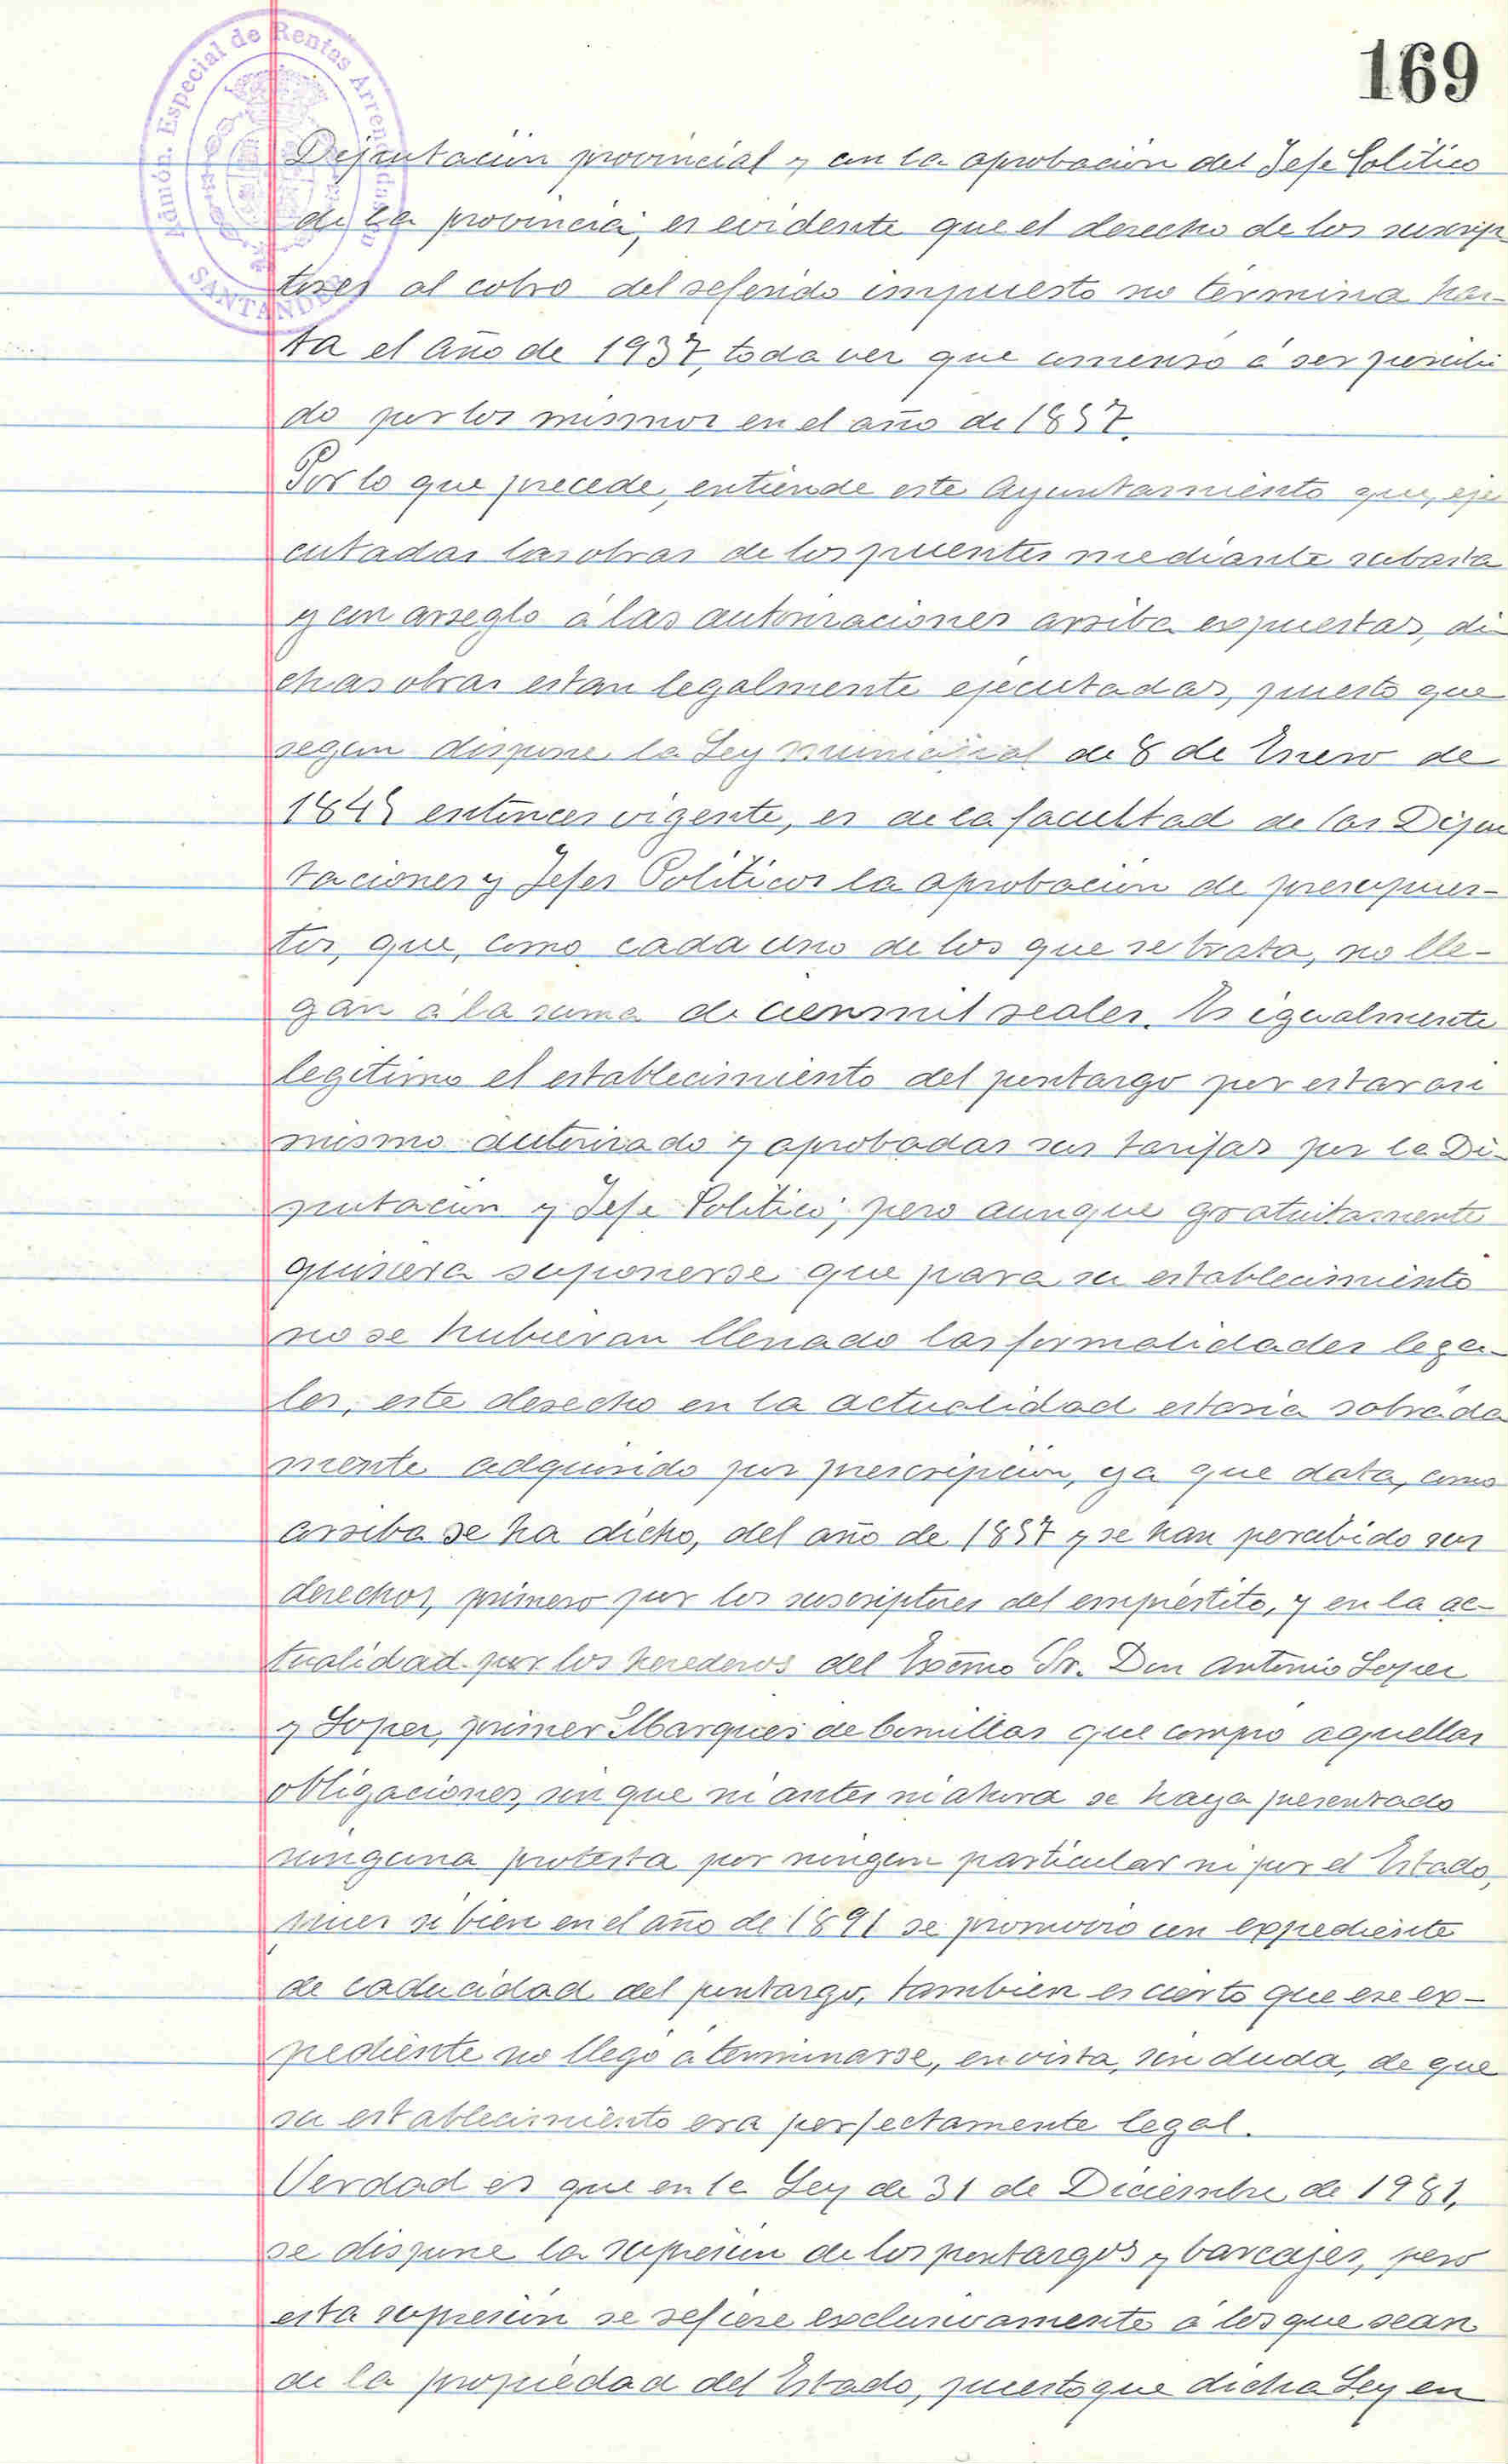 169
Admón. Especial de Rentas Arrendadas
SANTANDER
Diputación provincial y con la aprobación del Jefe Político
de la provincia; es evidente que el derecho de los suscrip
tores al cobro del referido impuesto no termina has-
ta el año de 1937, toda vez que comenzó á ser percibi
do por los mismos en el año de 1857.
Por lo que precede, entiende este Ayuntamiento que, eje
cutadas las obras de los puentes mediante subasta
y con arreglo á las autorizaciones arriba expuestas, di-
chas obras estan legalmente ejecutadas, puesto que
segun dispone la Ley municipal de 8 de Enero de
1845 entonces vigente, es de la facultad de las Dipu
taciones y Jefes Políticos la aprobación de presupues-
tos, que, como cada uno de los que se trata, no lle-
gan á la suma de cien mil reales. Es igualmente
legítimo el establecimiento del pontazgo por estar asi
mismo autorizado y aprobadas sus tarifas por la Di-
putación y Jefe Político; pero aunque gratuitamente
quisiera suponerse que para su establecimiento
no se hubieran llenado las formalidades lega-
les, este derecho en la actualidad estaria sobrada
mente adquirido por prescripción, ya que data, como
arriba se ha dicho, del año de 1857 y se han percibido sus
derechos, primero por los suscriptores del empréstito, y en la ac-
tualidad por los herederos del Excmo Sr. Don Antonio Lopez
y Lopez, primer Marques de Comillas que compró aquellas
obligaciones, sin que ni antes ni ahora se haya presentado
ninguna protesta por ningun particular ni por el Estado,
pues si bien en el año de 1891 se promovió un expediente
de caducidad del pontazgo, tambien es cierto que ese ex-
pediente no llegó á terminarse, en vista, sin duda, de que
su establecimiento era perfectamente legal.
Verdad es que en la Ley de 31 de Diciembre de 1981,
se dispone la supresión de los pontazgos y barcajes, pero
esta supresión se refiere exclusivamente á los que sean
de la propiedad del Estado, puesto que dicha Ley en